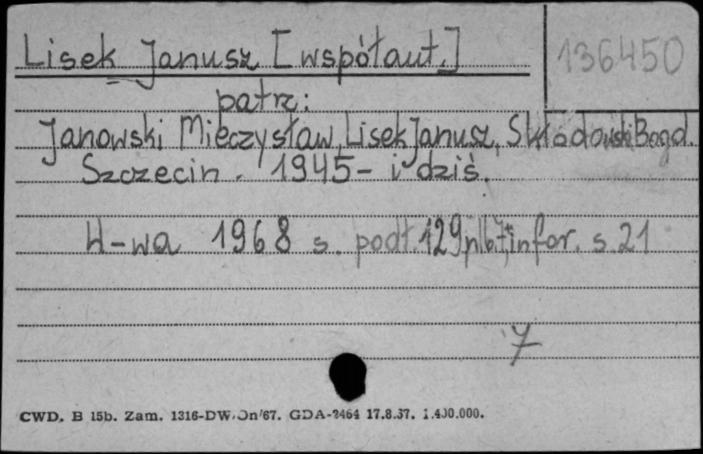 Lisek Janusz [współaut.]
136450
patrz:
Janowski Mieczysław, Lisek Janusz, Skłodowski Bogd.
Szczecin. 1945- i dziś.
W-wa 1968 s. podł. 129 nlb7, infor. s. 21
7
CWD. B 15b. Zam. 1316-DW/Dn/67. GDA-2464 17.8.67. 1.400.000.